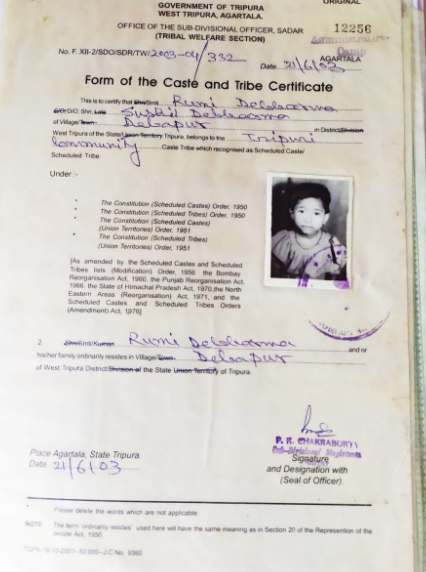 GOVERNMENT OF TRIPURA
ORIGINAL
WEST TRIPURA, AGARTALA.
OFFICE OF THE SUB-DIVISIONAL OFFICER, SADAR
12256
(TRIBAL WELFARE SECTION)
Camp
No. F. XII-2/SDO/SDR/TW/2003-04/332
AGARTALA
Date 21/6/03
Form of the Caste and Tribe Certificate
This is to certify that Shri/Smt Rumi Debbarma
S/O/D/O. Shri. Late Sushil Debbarma
of Village/Town Debapur in District/Division
West Tripura of the State/Union Territory Tripura, belongs to the Tripuri
Community Caste Tribe which recognised as Scheduled Caste/
Scheduled Tribe.
Under :-
* The Constitution (Scheduled Castes) Order, 1950
* The Constitution (Scheduled Tribes) Order, 1950
* The Constitution (Scheduled Castes)
(Union Territories) Order, 1951
* The Constitution (Scheduled Tribes)
(Union Territories) Order, 1951
[As amended by the Scheduled Castes and Scheduled
Tribes lists (Modification) Order, 1956 the Bombay
Reorganisation Act, 1960, the Punjab Reorganisation Act,
1966, the State of Himachal Pradesh Act, 1970,the North
Eastern Areas (Reorganisation) Act, 1971, and the
Scheduled Castes and Scheduled Tribes Orders
(Amendment) Act, 1976]
2. Shri/Smti/Kumari Rumi Debbarma and/or
his/her family ordinarily resides in Village/Town. Debapur
of West Tripura District/Division of the State Union Territory of Tripura.
P. R. CHAKRABORTY
Sub-Divisional Magistrate
Place Agartala, State Tripura.
Signature
Date 21/6/03
and Designation with
(Seal of Officer).
Please delete the words which are not applicable
NOTE : The term 'ordinarily resides' used here will have the same meaning as in Section 20 of the Represention of the
people Act, 1950
TGPA 16-10-2001-50,000-J/C No. 9360